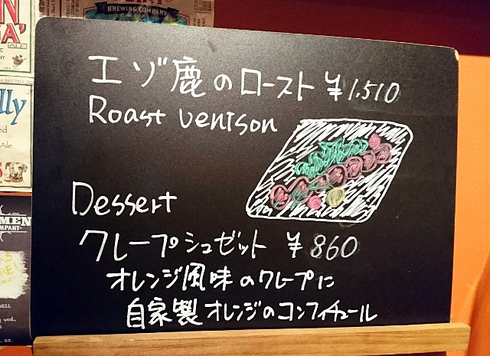 BREWING COMPANY
エゾ鹿のロースト ¥1,510
Roast venison
Dessert
クレープシュゼット ¥860
オレンジ風味のクレープに
自家製オレンジのコンフィチュール